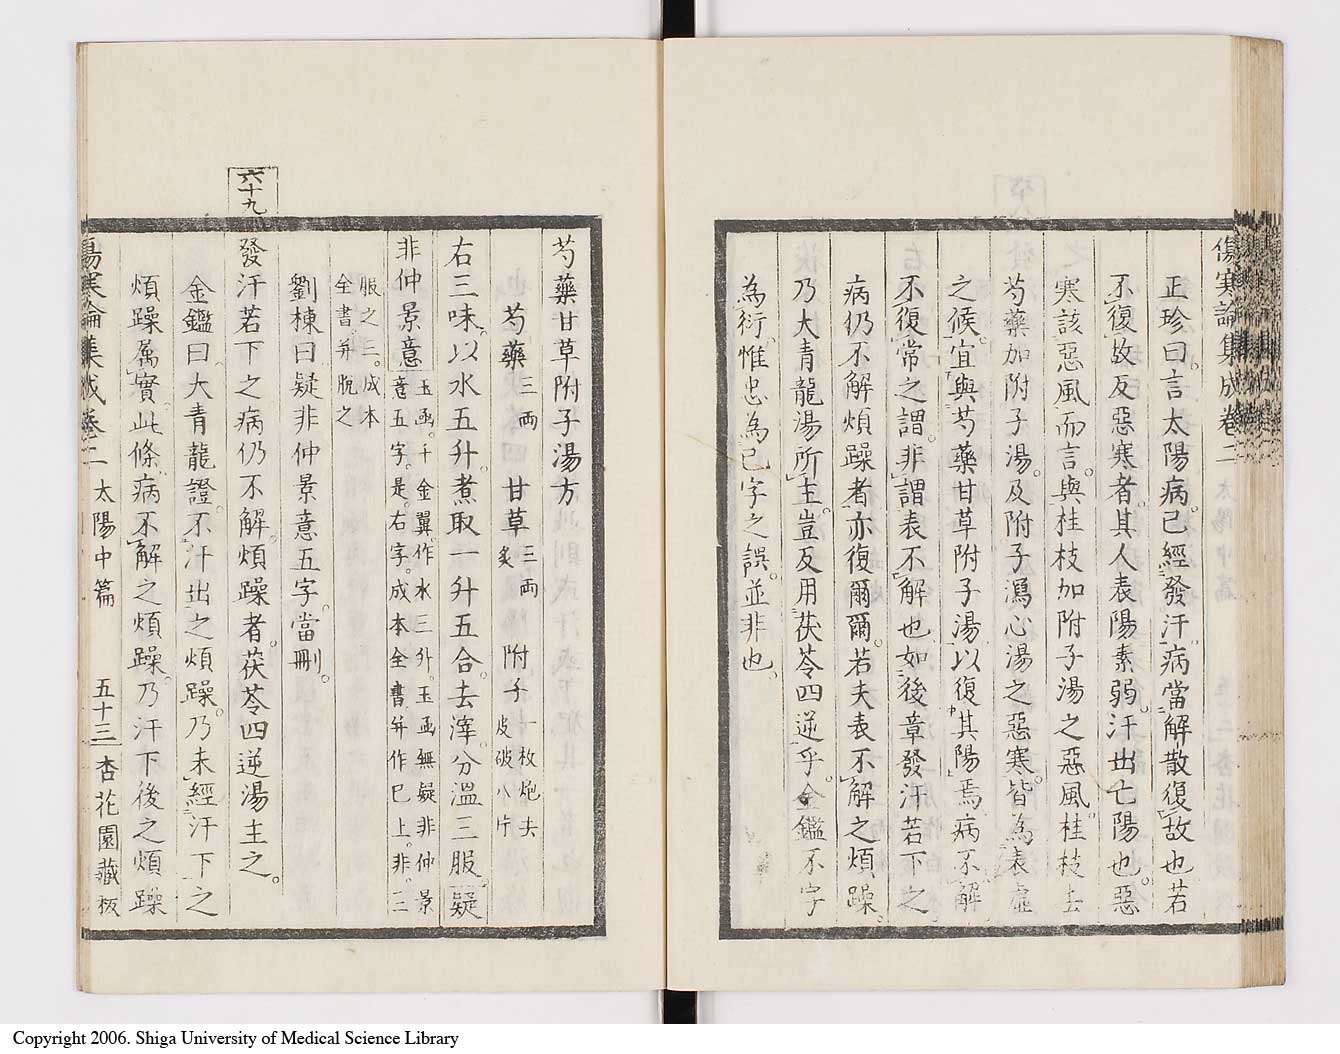 傷寒論集成卷二
正珍曰。言太陽病。已經發汗。病當解散復故也若
不復故反惡寒者。其人表陽素弱。汗出亡陽也。惡
寒該惡風而言。與桂枝加附子湯之惡風。桂枝去
芍藥加附子湯。及附子瀉心湯之惡寒。皆為表虛
之候。宜與芍藥甘草附子湯以復其陽焉病不解
不復常之謂。非謂表不解也如後章發汗若下之
病仍不解煩躁者亦復爾爾。若夫表不解之煩躁。
乃大青龍湯所主。豈反用茯苓四逆乎。金鑑不字
為衍。惟忠為已字之誤。並非也。
芍藥甘草附子湯方
芍藥三兩 甘草三兩炙 附子一枚炮去皮破八片
右三味。以水五升。煮取一升五合。去滓。分溫三服。疑
非仲景意玉函。千金翼。作水三升。玉函無疑非仲景意五字。是。右字。成本全書并作已上。非。三
服之三。成本全書并脫之
劉棟曰疑非仲景意五字。當刪。
六十九
發汗若下之病仍不解。煩躁者。茯苓四逆湯主之。
金鑑曰。大青龍證。不汗出之煩躁。乃未經汗下之
煩躁屬實。此條病不解之煩躁。乃汗下後之煩躁
傷寒論集成卷二 太陽中篇 五十三 杏花園藏板
Copyright 2006. Shiga University of Medical Science Library